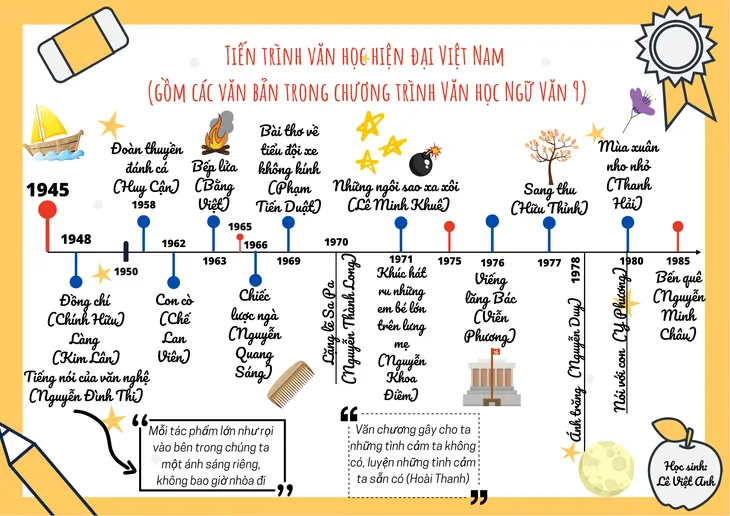 Tiến trình văn học hiện đại Việt Nam
(gồm các văn bản trong chương trình Văn học Ngữ Văn 9)
Đoàn thuyền
đánh cá
(Huy Cận)
Bếp lửa
(Bằng
Việt)
Bài thơ về
tiểu đội xe
không kính
(Phạm
Tiến Duật)
Những ngôi sao xa xôi
(Lê Minh Khuê)
Sang thu
(Hữu Thỉnh)
Mùa xuân
nho nhỏ
(Thanh
Hải)
1945
1948
1950
1958
1962
1963
1965
1966
1969
1970
1971
1975
1976
1977
1978
1980
1985
Đồng chí
(Chính Hữu)
Làng
(Kim Lân)
Tiếng nói của văn nghệ
(Nguyễn Đình Thi)
Con cò
(Chế
Lan
Viên)
Chiếc
lược ngà
(Nguyễn
Quang
Sáng)
Lặng lẽ Sa Pa
(Nguyễn Thành Long)
Khúc hát
ru những
em bé lớn
trên lưng
mẹ
(Nguyễn
Khoa
Điềm)
Viếng
lăng Bác
(Viễn
Phương)
Ánh trăng (Nguyễn Duy)
Nói với con (Y Phương)
Bến quê
(Nguyễn
Minh
Châu)
"
Mỗi tác phẩm lớn như rọi
vào bên trong chúng ta
một ánh sáng riêng,
không bao giờ nhòa đi
"
"
Văn chương gây cho ta
những tình cảm ta không
có, luyện những tình cảm
ta sẵn có (Hoài Thanh)
"
Học sinh:
Lê Việt Anh